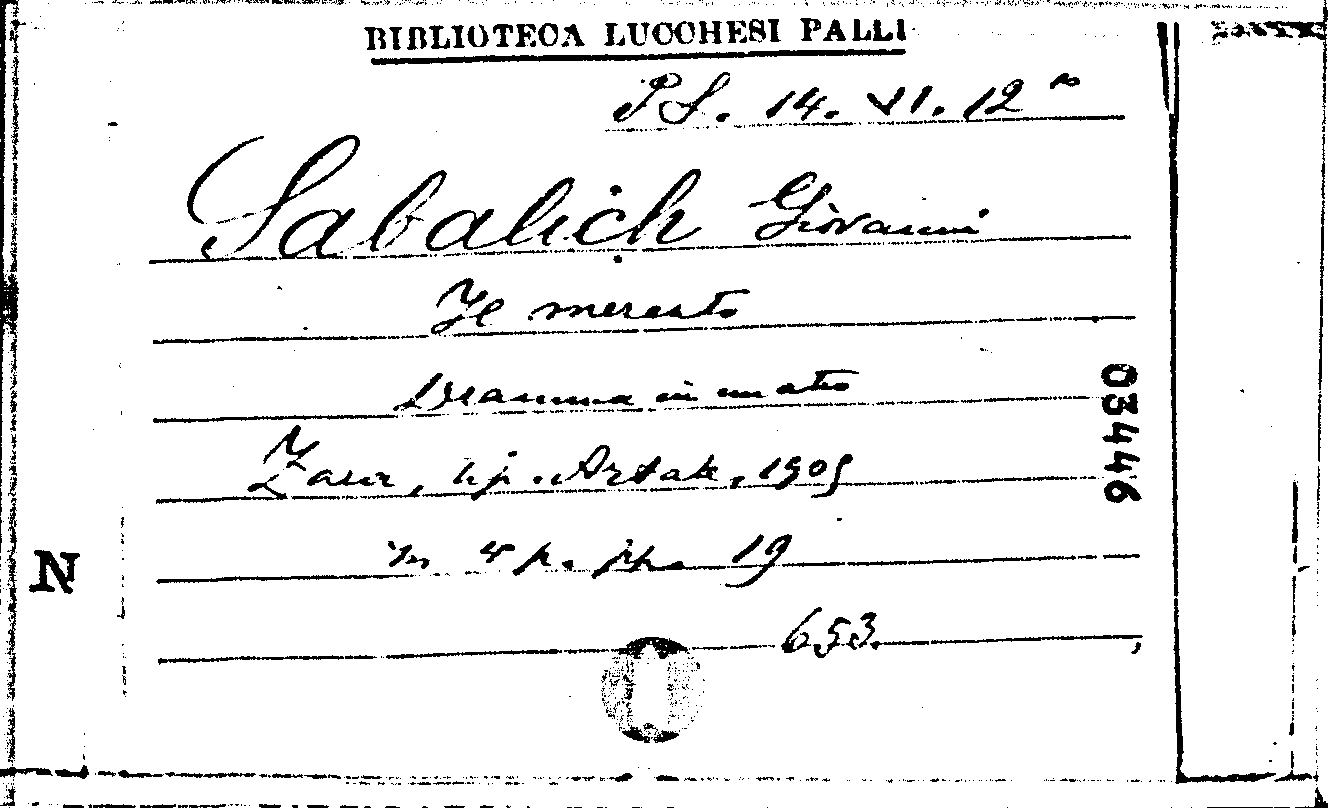 BIBLIOTECA LUCCHESI PALLI
P S. 14. VI. 12
Sabalich Giovanni
Il
Dramma in un atto
Zara, tip. Artale, 1905
in 4 p. pp. 19
653.
03446
N